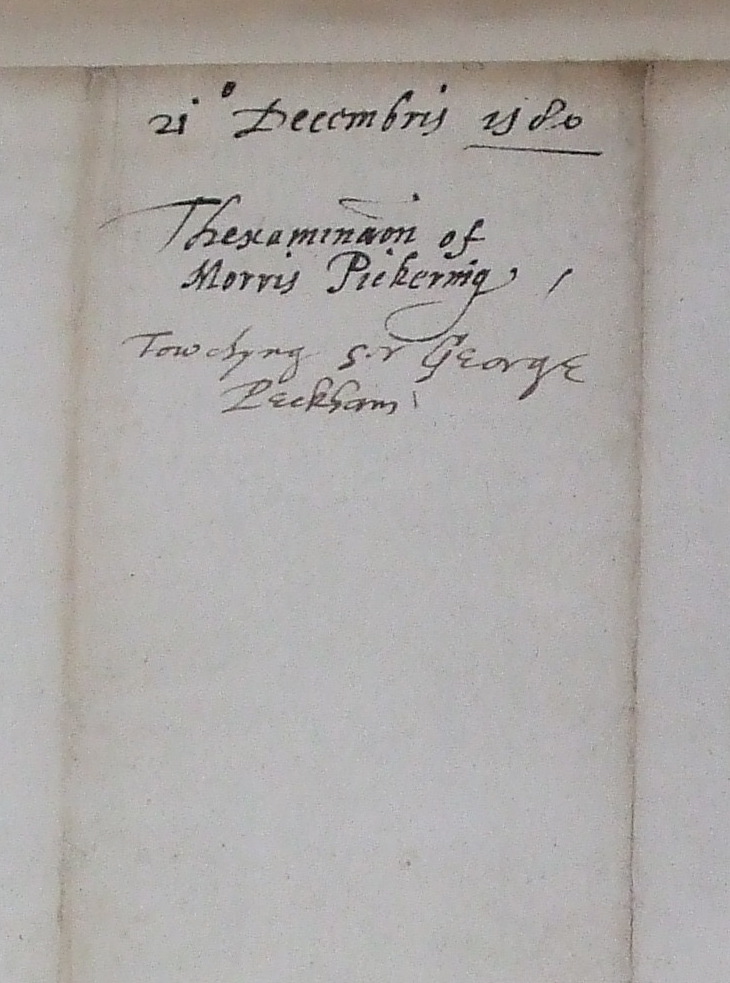 21° Decembris 1580
Thexaminac̃on of
Morris Pickering /
Towchyng Sr George
Peckham